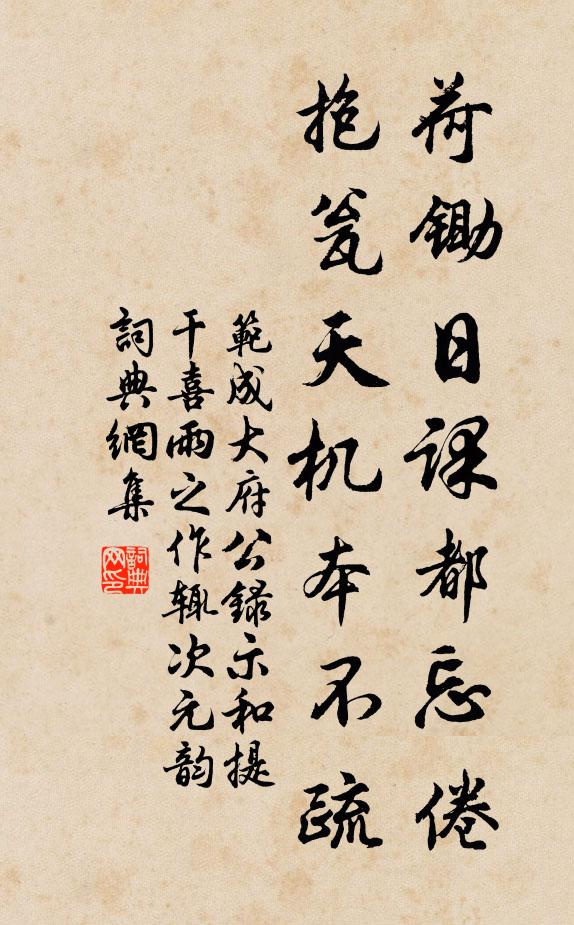 荷锄日课都忘倦
抱瓮天机本不疏
範成大府公錄示和提
干喜雨之作辄次元韵
詞典網集
詞典网印